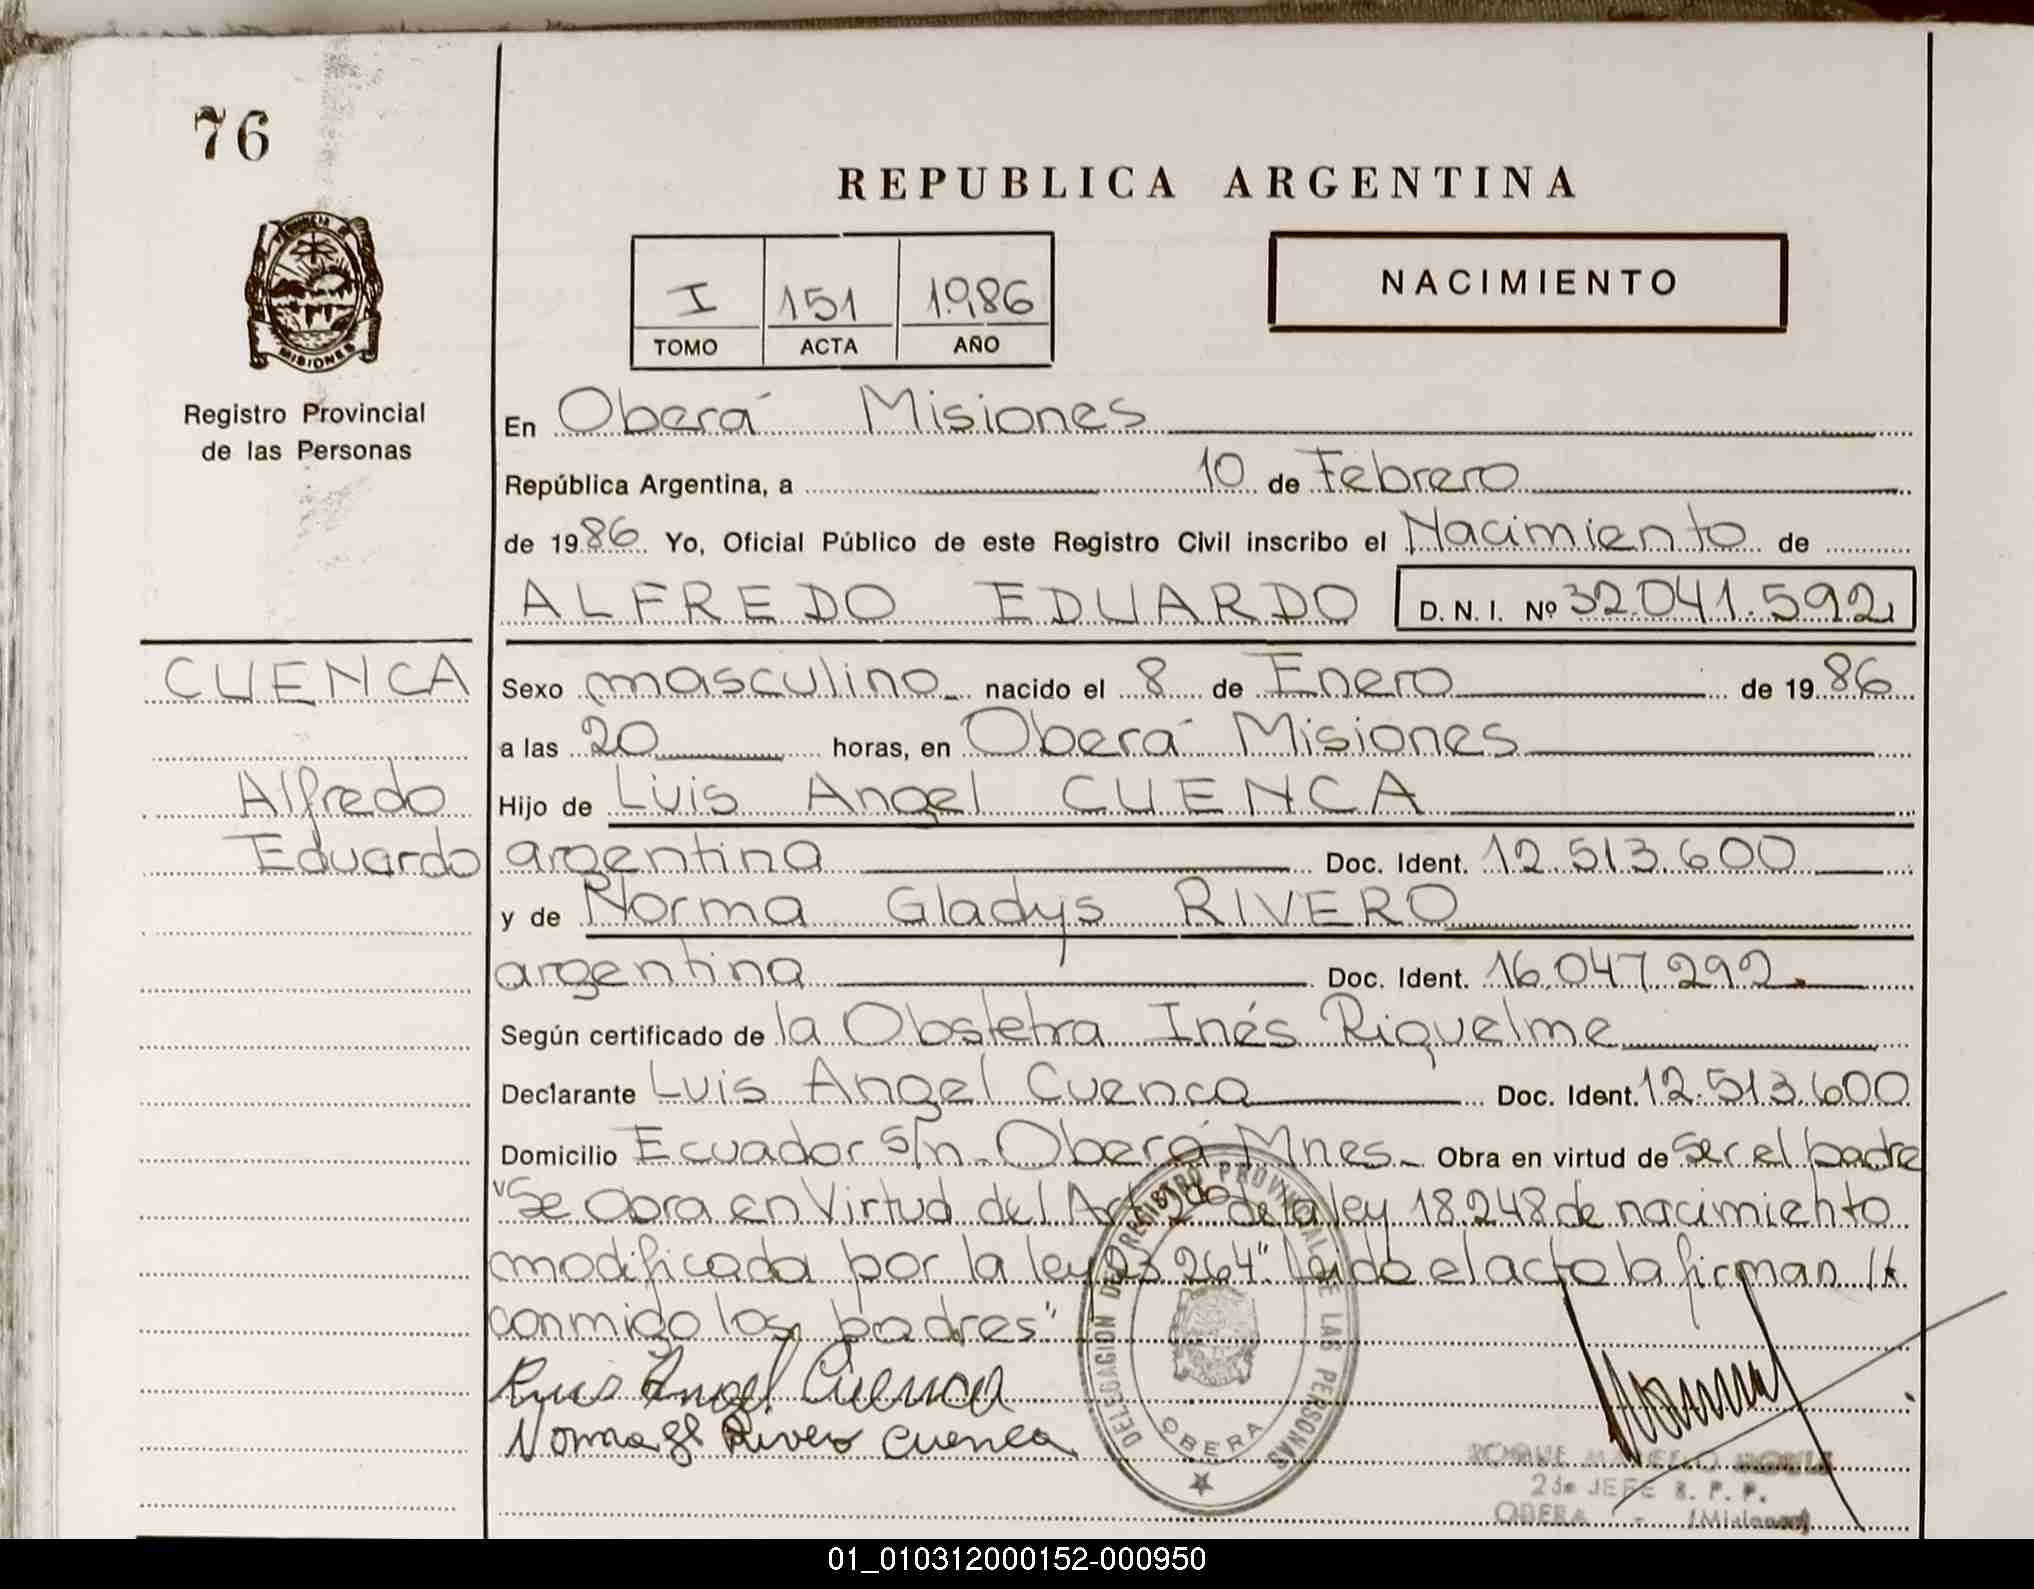 76
REPUBLICA ARGENTINA
PROVINCIA DE
MISIONES
I 151 1986
TOMO ACTA AÑO
NACIMIENTO
Registro Provincial
de las Personas
En Oberá Misiones
República Argentina, a 10 de Febrero
de 1986 Yo, Oficial Público de este Registro Civil inscribo el Nacimiento de
ALFREDO EDUARDO D. N. I. Nº 32.041.592
CUENCA
Alfredo
Eduardo
Sexo masculino nacido el 8 de Enero de 1986
a las 20 horas, en Oberá Misiones
Hijo de Luis Angel CUENCA
argentina Doc. Ident. 12.513.600
y de Norma Gladys RIVERO
argentina Doc. Ident. 16.047.292
Según certificado de la Obstetra Inés Riquelme
Declarante Luis Angel Cuenca Doc. Ident. 12.513.600
Domicilio Ecuador s/n - Oberá Mnes - Obra en virtud de Ser el padre
"Se Obra en Virtud del Art 2do de la ley 18.248 de nacimiento
modificada por la ley 23 264". Leido el acto la firman //
conmigo los padres"
Luis Angel Cuenca
Norma Gl Rivero Cuenca
DELEGACION DEL REGISTRO PROVINCIAL DE LAS PERSONAS
OBERA
ROQUE
2do JEFE R. P. P.
OBERA - (Misiones)
01_010312000152-000950